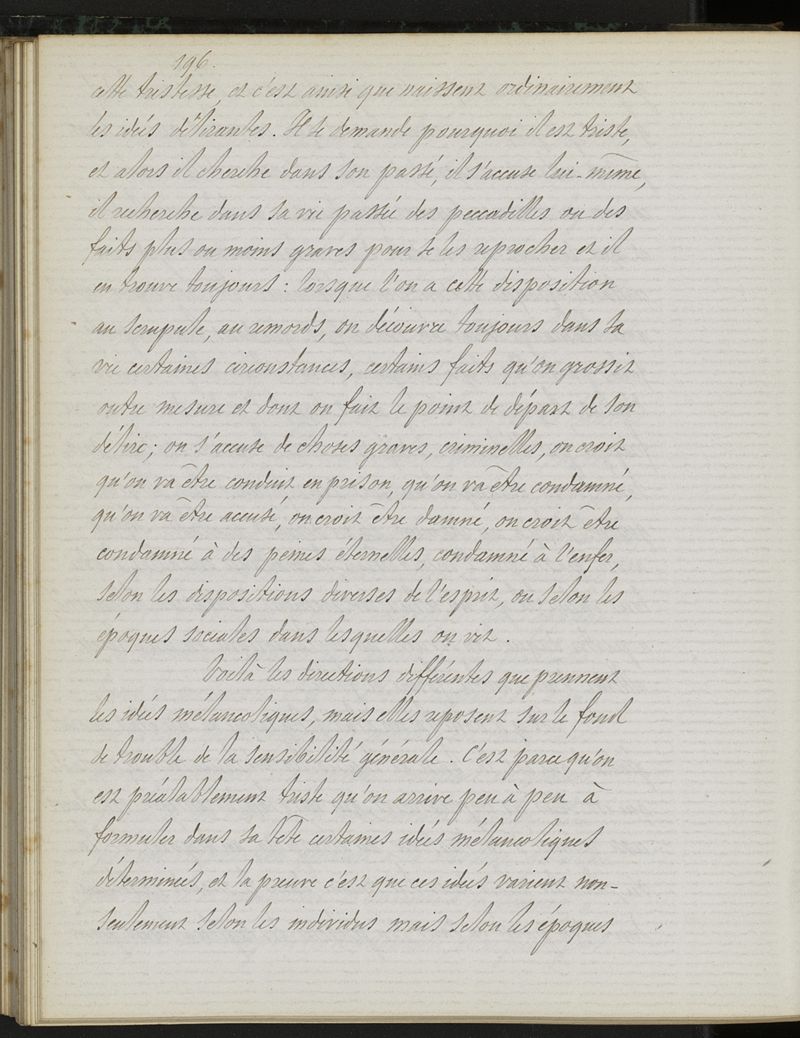 196.
cette tristesse, et c'est ainsi que naissent ordinairement
les idées délirantes. Il se demande pourquoi il est triste,
et alors il cherche dans son passé, il s'accuse lui-même,
il recherche dans sa vie passée des peccadilles ou des
faits plus ou moins graves pour se les reprocher et il
en trouve toujours : lorsque l'on a cette disposition
au scrupule, au remords, on découvre toujours dans sa
vie certaines circonstances, certains faits qu'on grossit
outre mesure et dont on fait le point de départ de son
délire ; on s'accuse de choses graves, criminelles, on croit
qu'on va être conduit en prison, qu'on va être condamné,
qu'on va être accusé, on croit être damné, on croit être
condamné à des peines éternelles, condamné à l'enfer,
selon les dispositions diverses de l'esprit, ou selon les
époques sociales dans lesquelles on vit.
Voilà les directions différentes que prennent
les idées mélancoliques, mais elles reposent sur le fond
de trouble de la sensibilité générale. C'est parce qu'on
est préalablement triste qu'on arrive peu à peu à
formuler dans sa tête certaines idées mélancoliques
déterminées, et la preuve c'est que ces idées varient non-
seulement selon les individus mais selon les époques